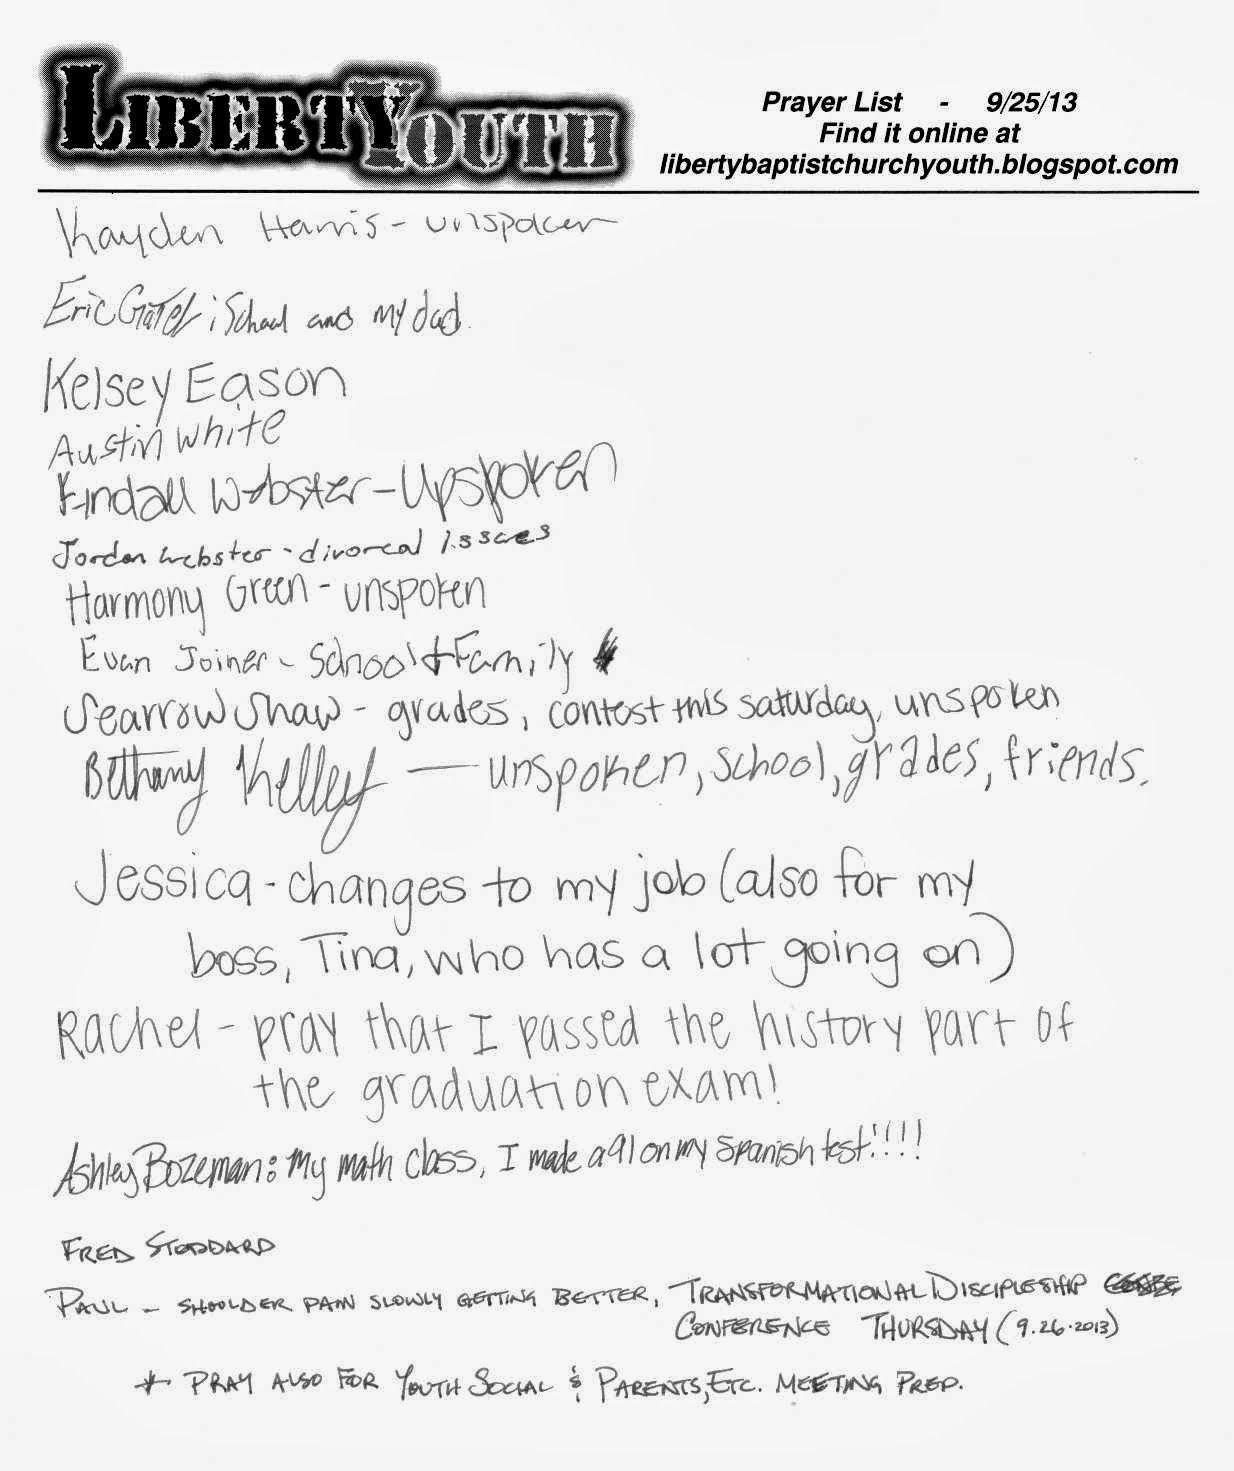 LIBERTY YOUTH
Prayer List - 9/25/13
Find it online at
libertybaptistchurchyouth.blogspot.com
Kayden Harris - unspoken
Eric : School and my dad.
Kelsey Eason
Austin White
Kindall Webster - Upspoken
Jordan Webster - divorcal issues
Harmony Green - unspoken
Evan Joiner - School & Family
Searrow Shaw - grades, contest this saturday, unspoken
Bethany Kelley — unspoken, school, grades, friends.
Jessica - changes to my job (also for my
boss, Tina, who has a lot going on)
Rachel - pray that I passed the history part of
the graduation exam!
Ashley Bozeman: My math class, I made a 91 on my Spanish test!!!!
FRED STODDARD
PAUL - SHOULDER PAIN SLOWLY GETTING BETTER, TRANSFORMATIONAL DISCIPLESHIP
CONFERENCE THURSDAY (9.26.2013)
* PRAY ALSO FOR YOUTH SOCIAL & PARENTS, ETC. MEETING PREP.